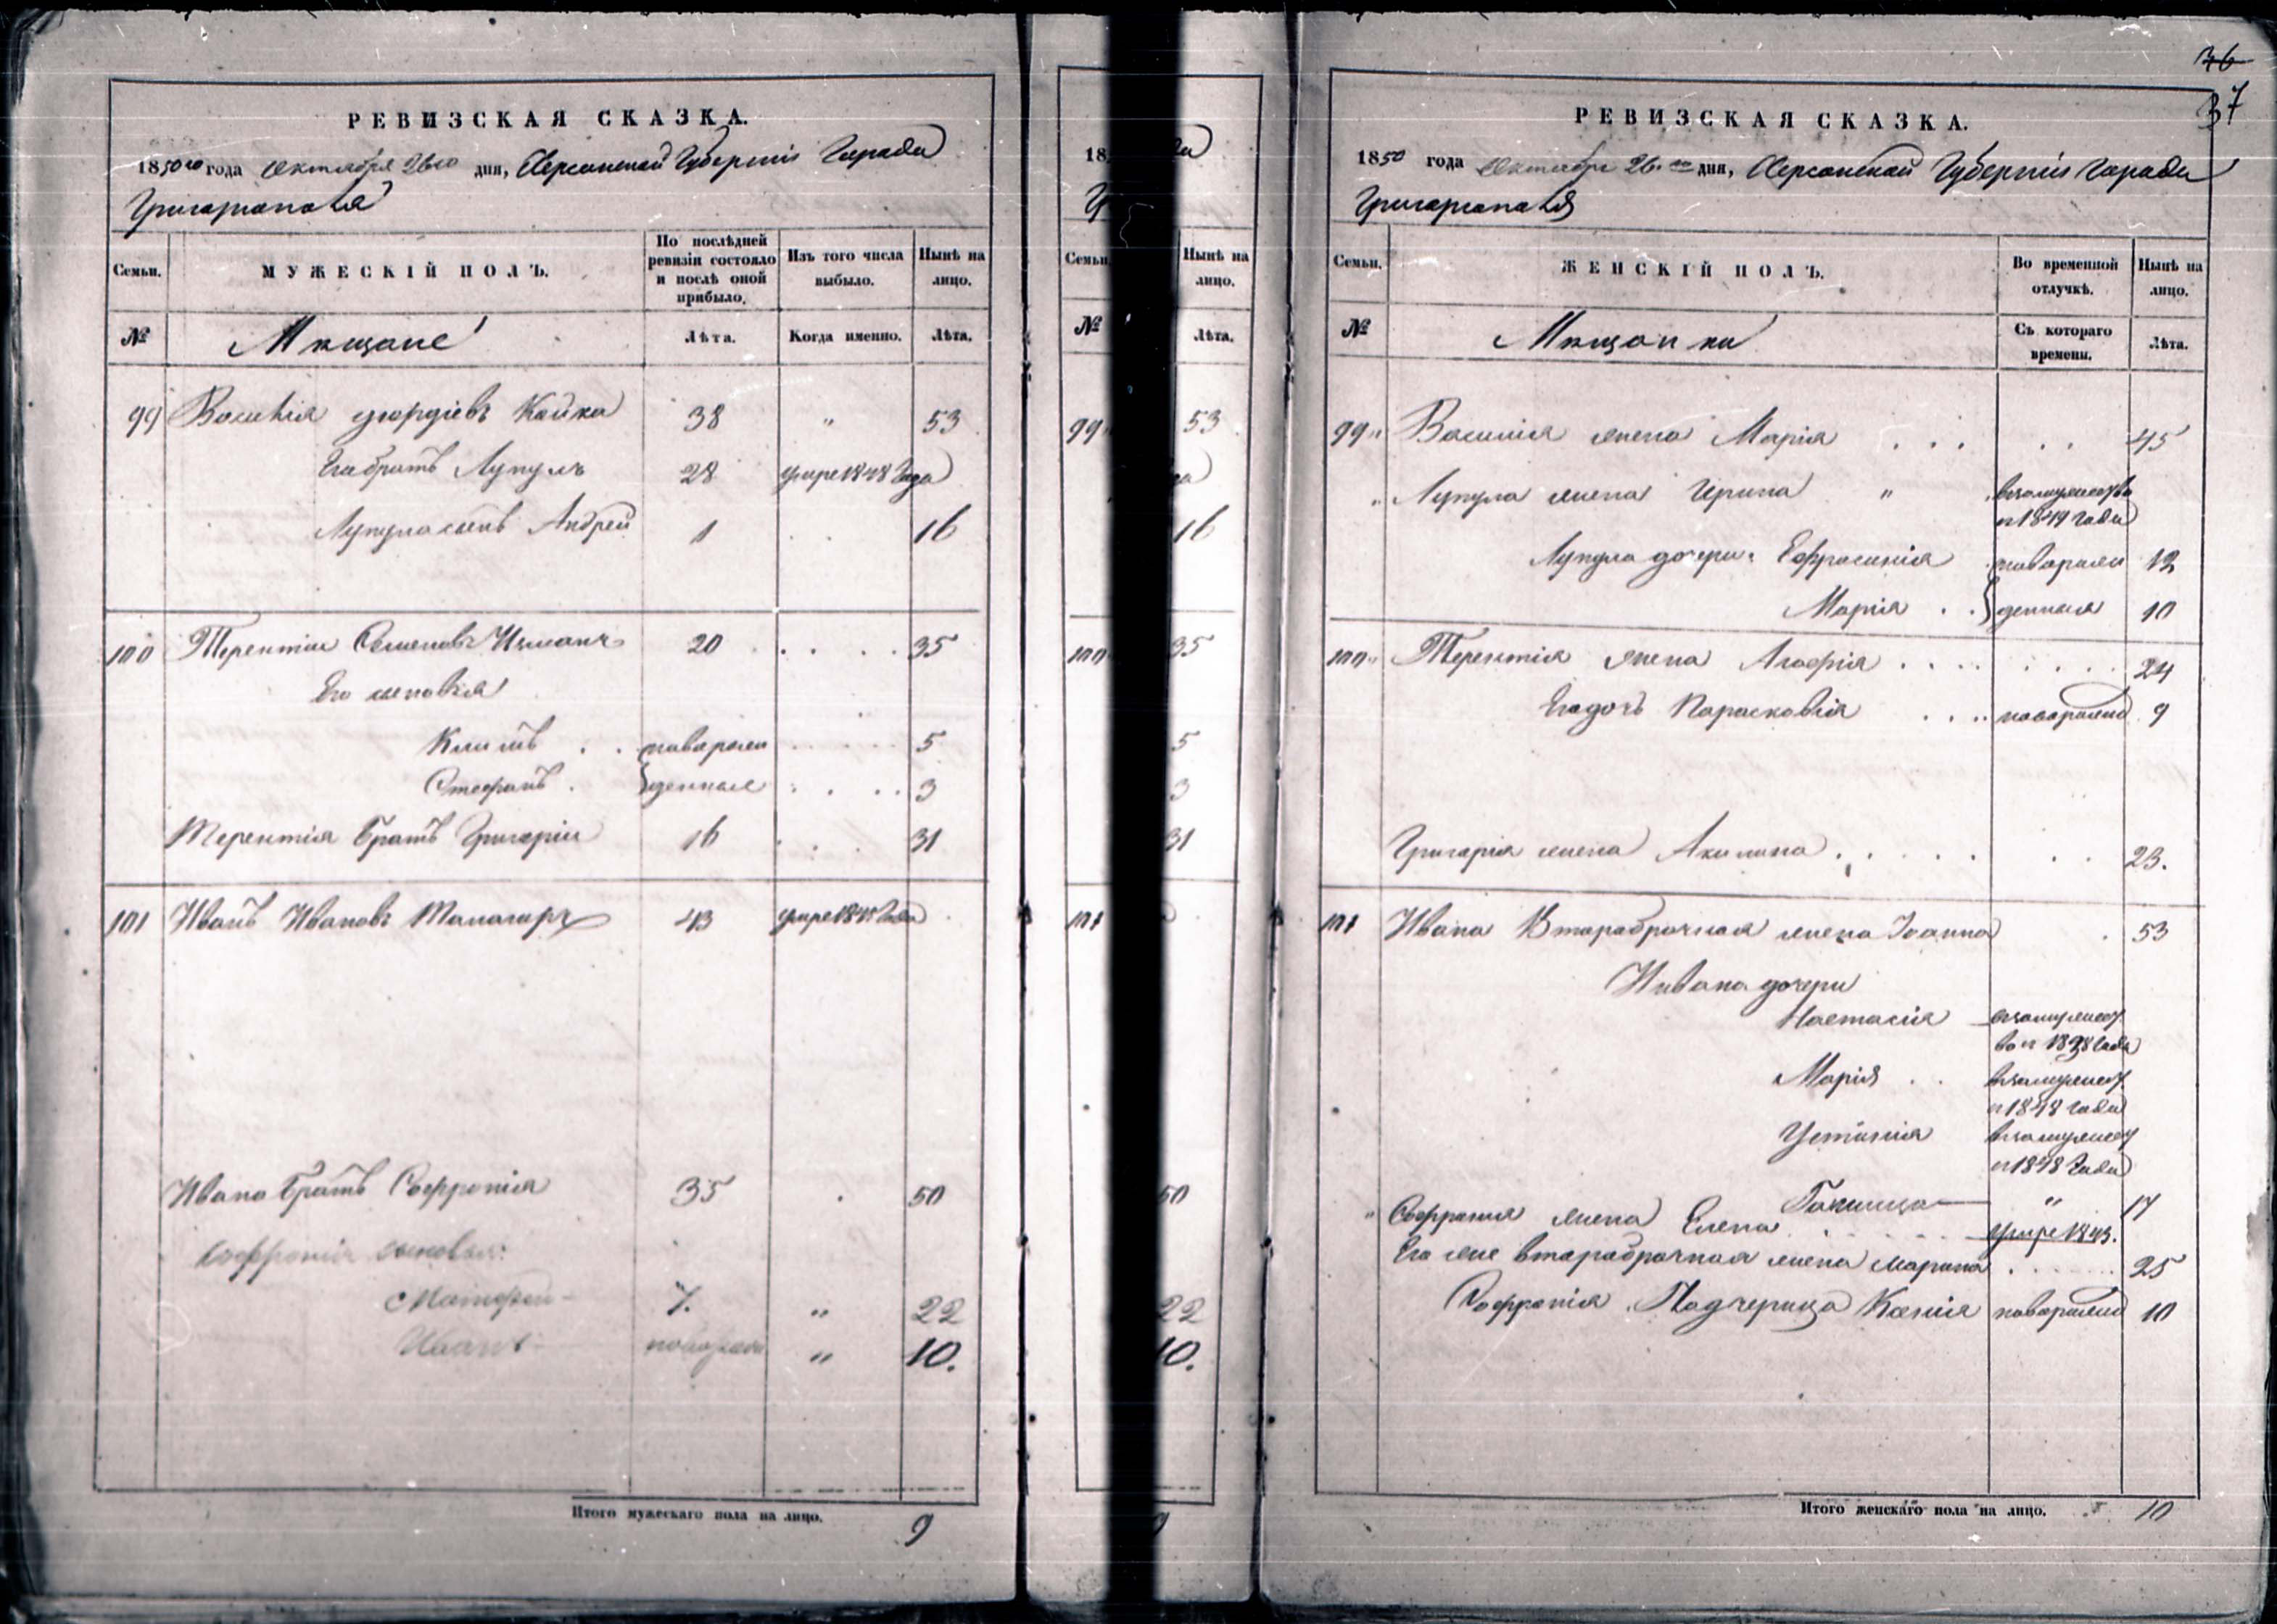 РЕВИЗСКАЯ СКАЗКА.
1850го года Октября 26го дня, Херсонской Губерніи Города
Григоріополя
Семьи.
МУЖЕСКІЙ ПОЛЪ.
По послѣдней
ревизіи состояло
и послѣ оной
прибыло.
Изъ того числа
выбыло.
Нынѣ на
лицо.
№
Мѣщане
Лѣта.
Когда именно.
Лѣта.
99 Василія Георгіевъ Кайка 38 " 53
Его братъ Лупулъ 28 умре 1848 года
Лупула сынъ Андрей 1 . . 16
100 Терентіи Семеновъ 20 . . . . 35
Его сыновья
. . новорож 5
Стефанъ . денные . . . . 3
Терентія братъ Григоріи 16 . . . 31
101 Иванъ Ивановъ 43 умре
Ивана братъ Софронія 35 . 50
Софронія сыновья:
Матфей 7. " 22
Иванъ " 10.
Итого мужескаго пола на лицо. 9
18
Семьи
Нынѣ на
лицо.
№
Лѣта.
99 53
16
100 35
5
3
31
101
50
22
10.
36
37
РЕВИЗСКАЯ СКАЗКА.
1850 года Октября 26.го дня, Херсонской Губерніи Города
Григоріополя
Семьи.
ЖЕНСКІЙ ПОЛЪ.
Во временной
отлучкѣ.
Нынѣ на
лицо.
№
Мѣщанки
Съ котораго
времени.
Лѣта.
99" Василія жена Марія . . . . . 45
" Лупула жена Ирина " взамужеств
съ 1849 года
Лупула дочери: Ефросинія новорож 12
Марія . . денныя 10
100" Терентія жена Агафія . . . . . . . . 24
Его дочь Парасковія . . . новорожд 9
Григорія жена Акилина . . . . . . . 23.
101 Ивана Второбрачная жена Іоанна . 53
Ивана дочери
Настасія взамужест
во съ года
Марія . . взамужест
съ 1848 года
Устинія взамужест
съ 1848 года
" 17
" Софронія жена Елена умре 1843.
Его же второбрачная жена Марина . . . . 25
Софронія Подчерица Ксенія новорожд 10
Итого женскаго пола на лицо. 10